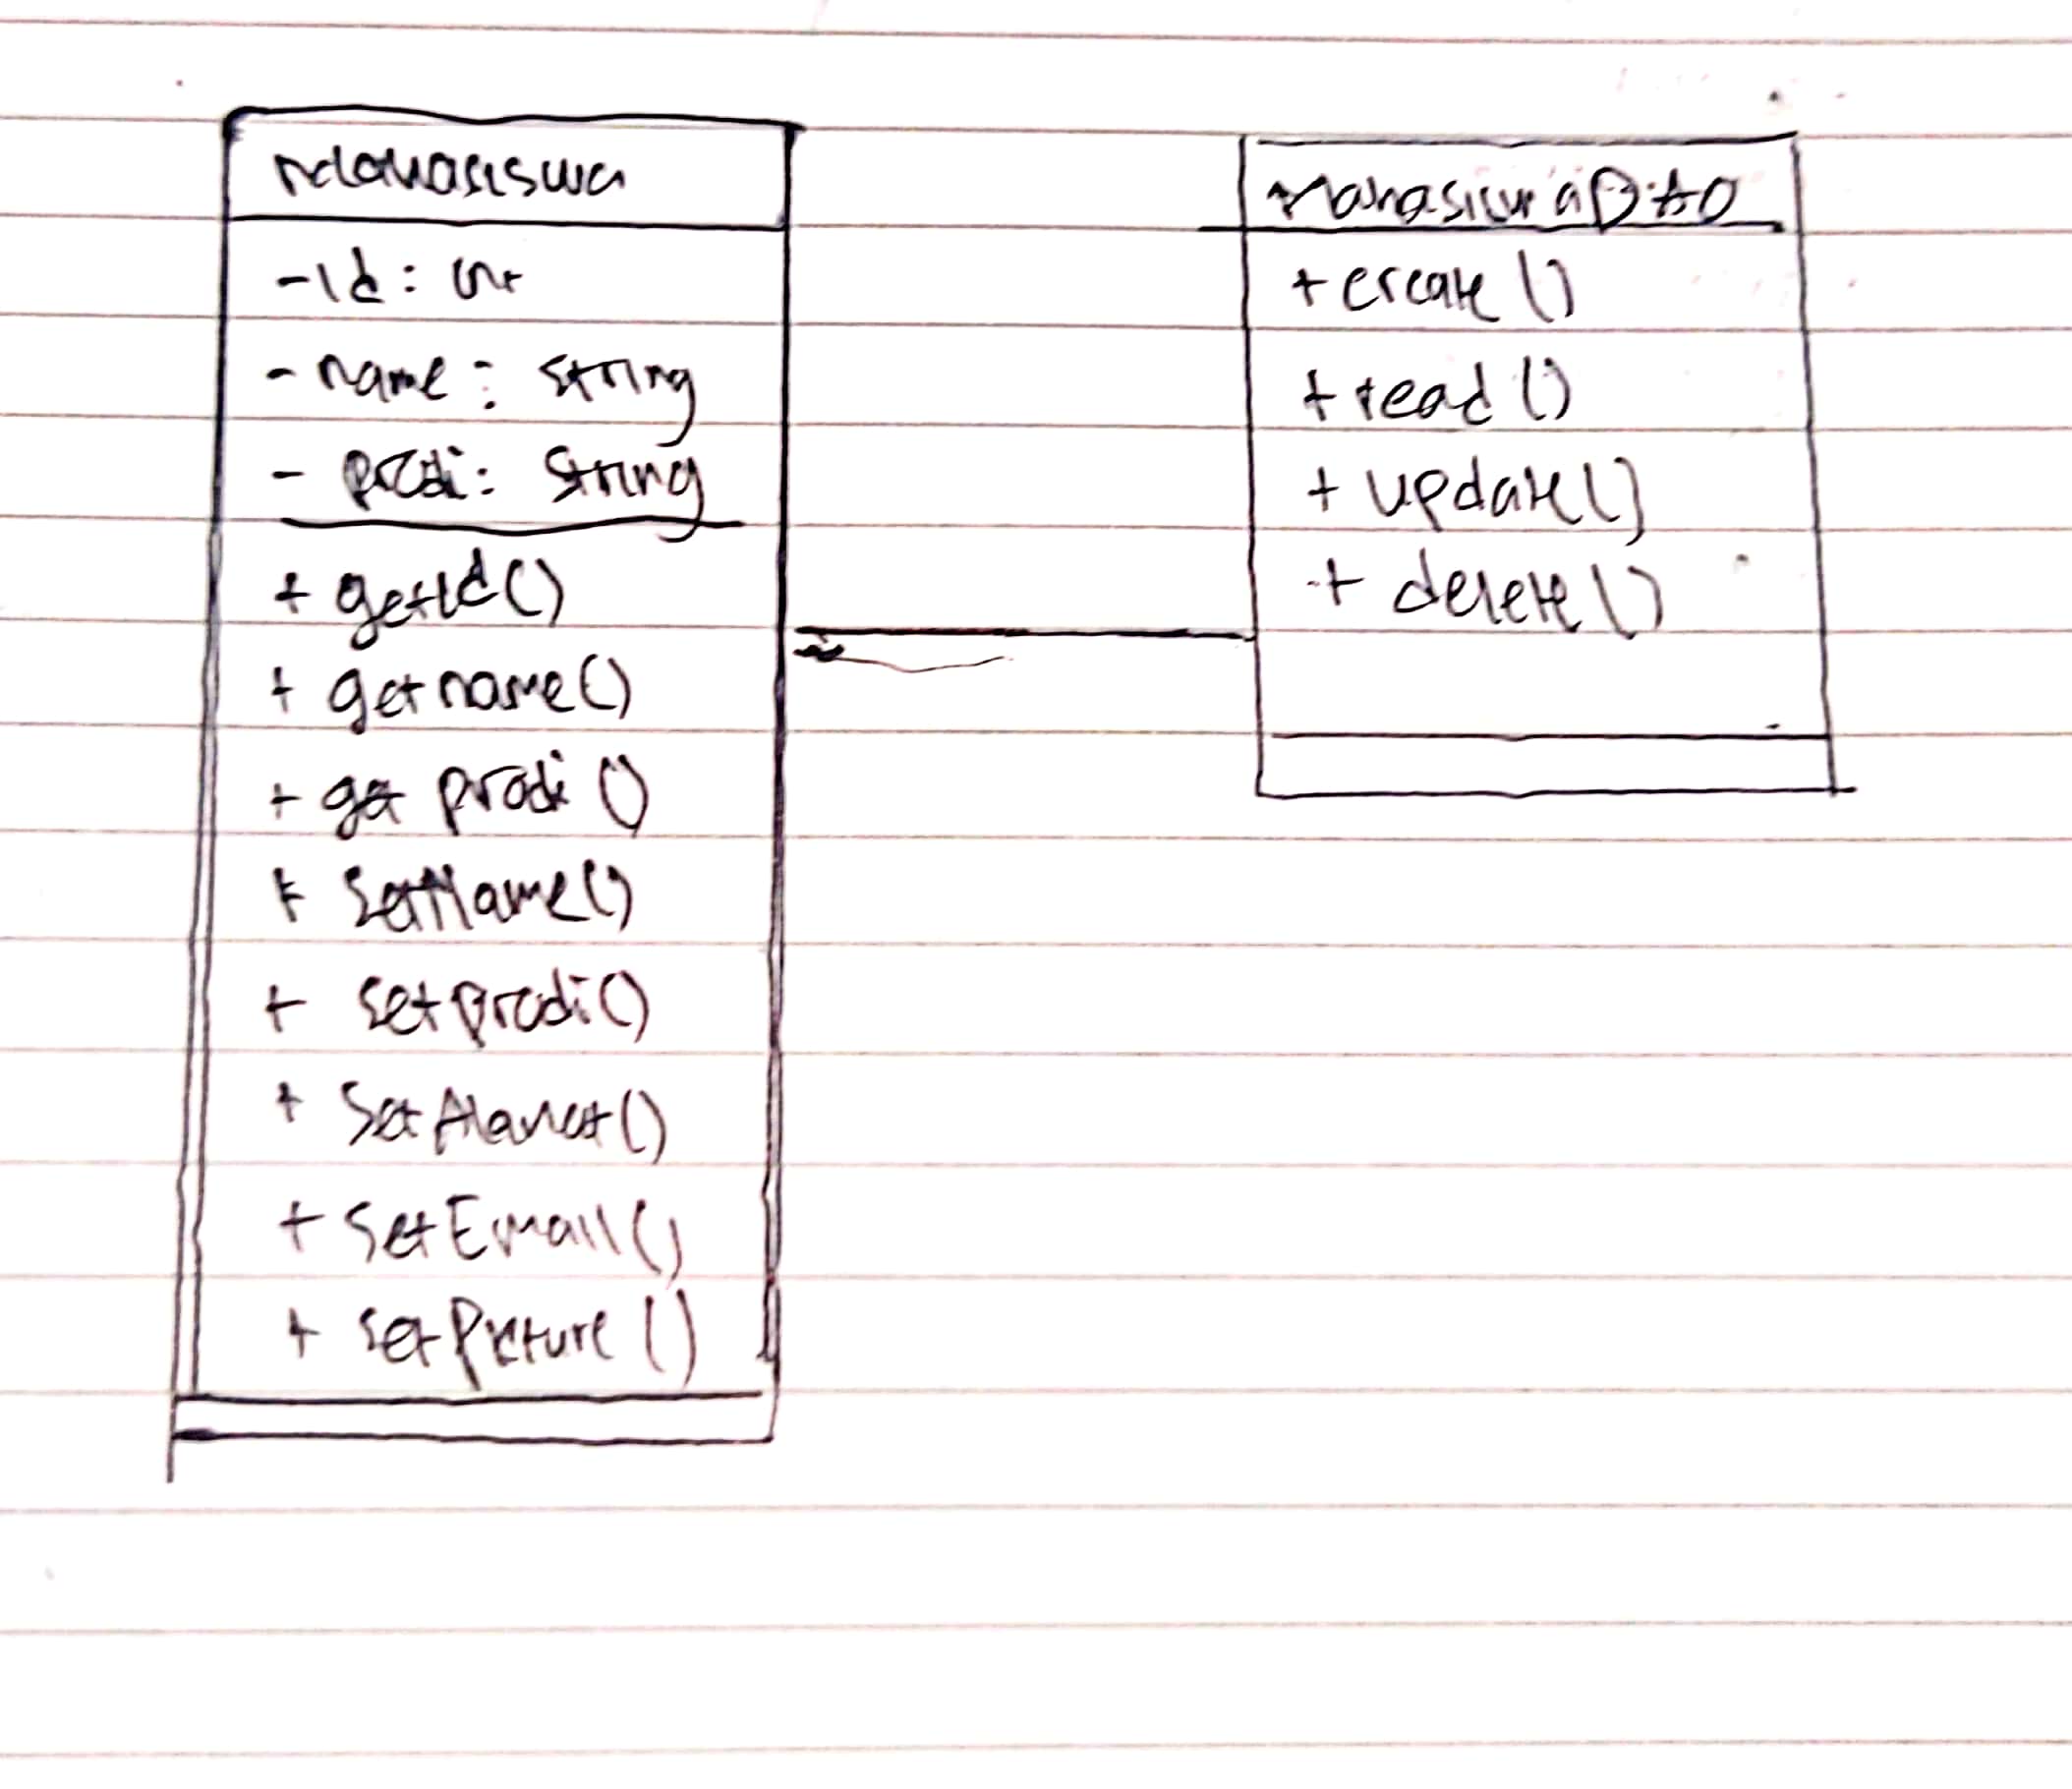 Mahasiswa
- id : int
- name : string
- prodi : string
+ getId()
+ getname()
+ get prodi ()
+ setName()
+ setprodi()
+ Set Alamat()
+ SetEmail()
+ setPicture ()
MahasiswaDAO
+ create ()
+ read ()
+ update()
+ delete ()